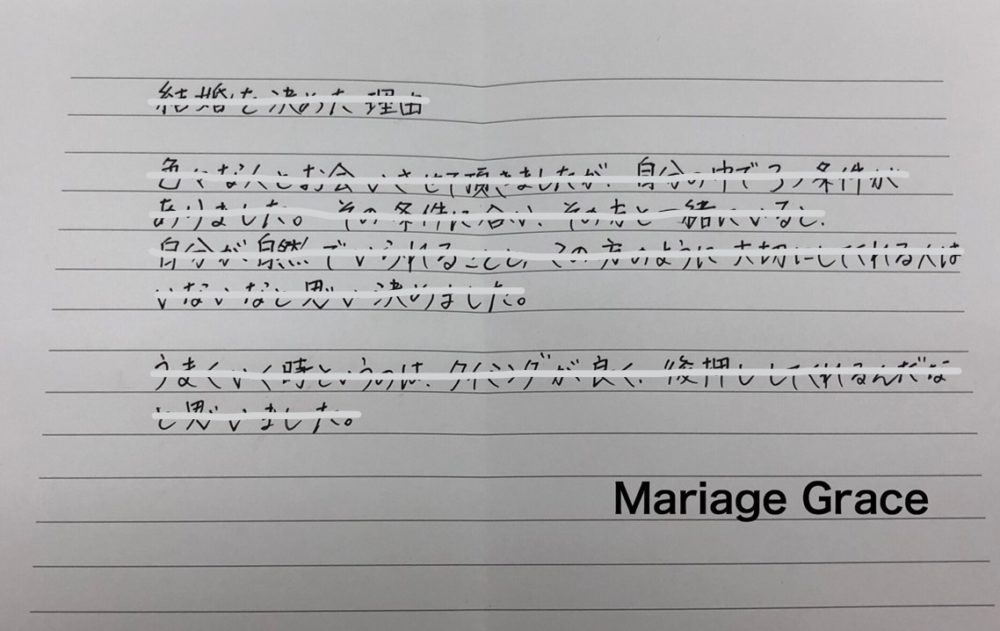 結婚を決めた理由
色々な人とお会いさせて頂きましたが、自分の中で3つ条件が
ありました。その条件に合い、その方と一緒にいると、
自分が自然でいられることと、この方のように大切にしてくれる人は
いないなと思い決めました。
うまくいく時というのは、タイミングが良く、後押ししてくれるんだな
と思いました。
Mariage Grace